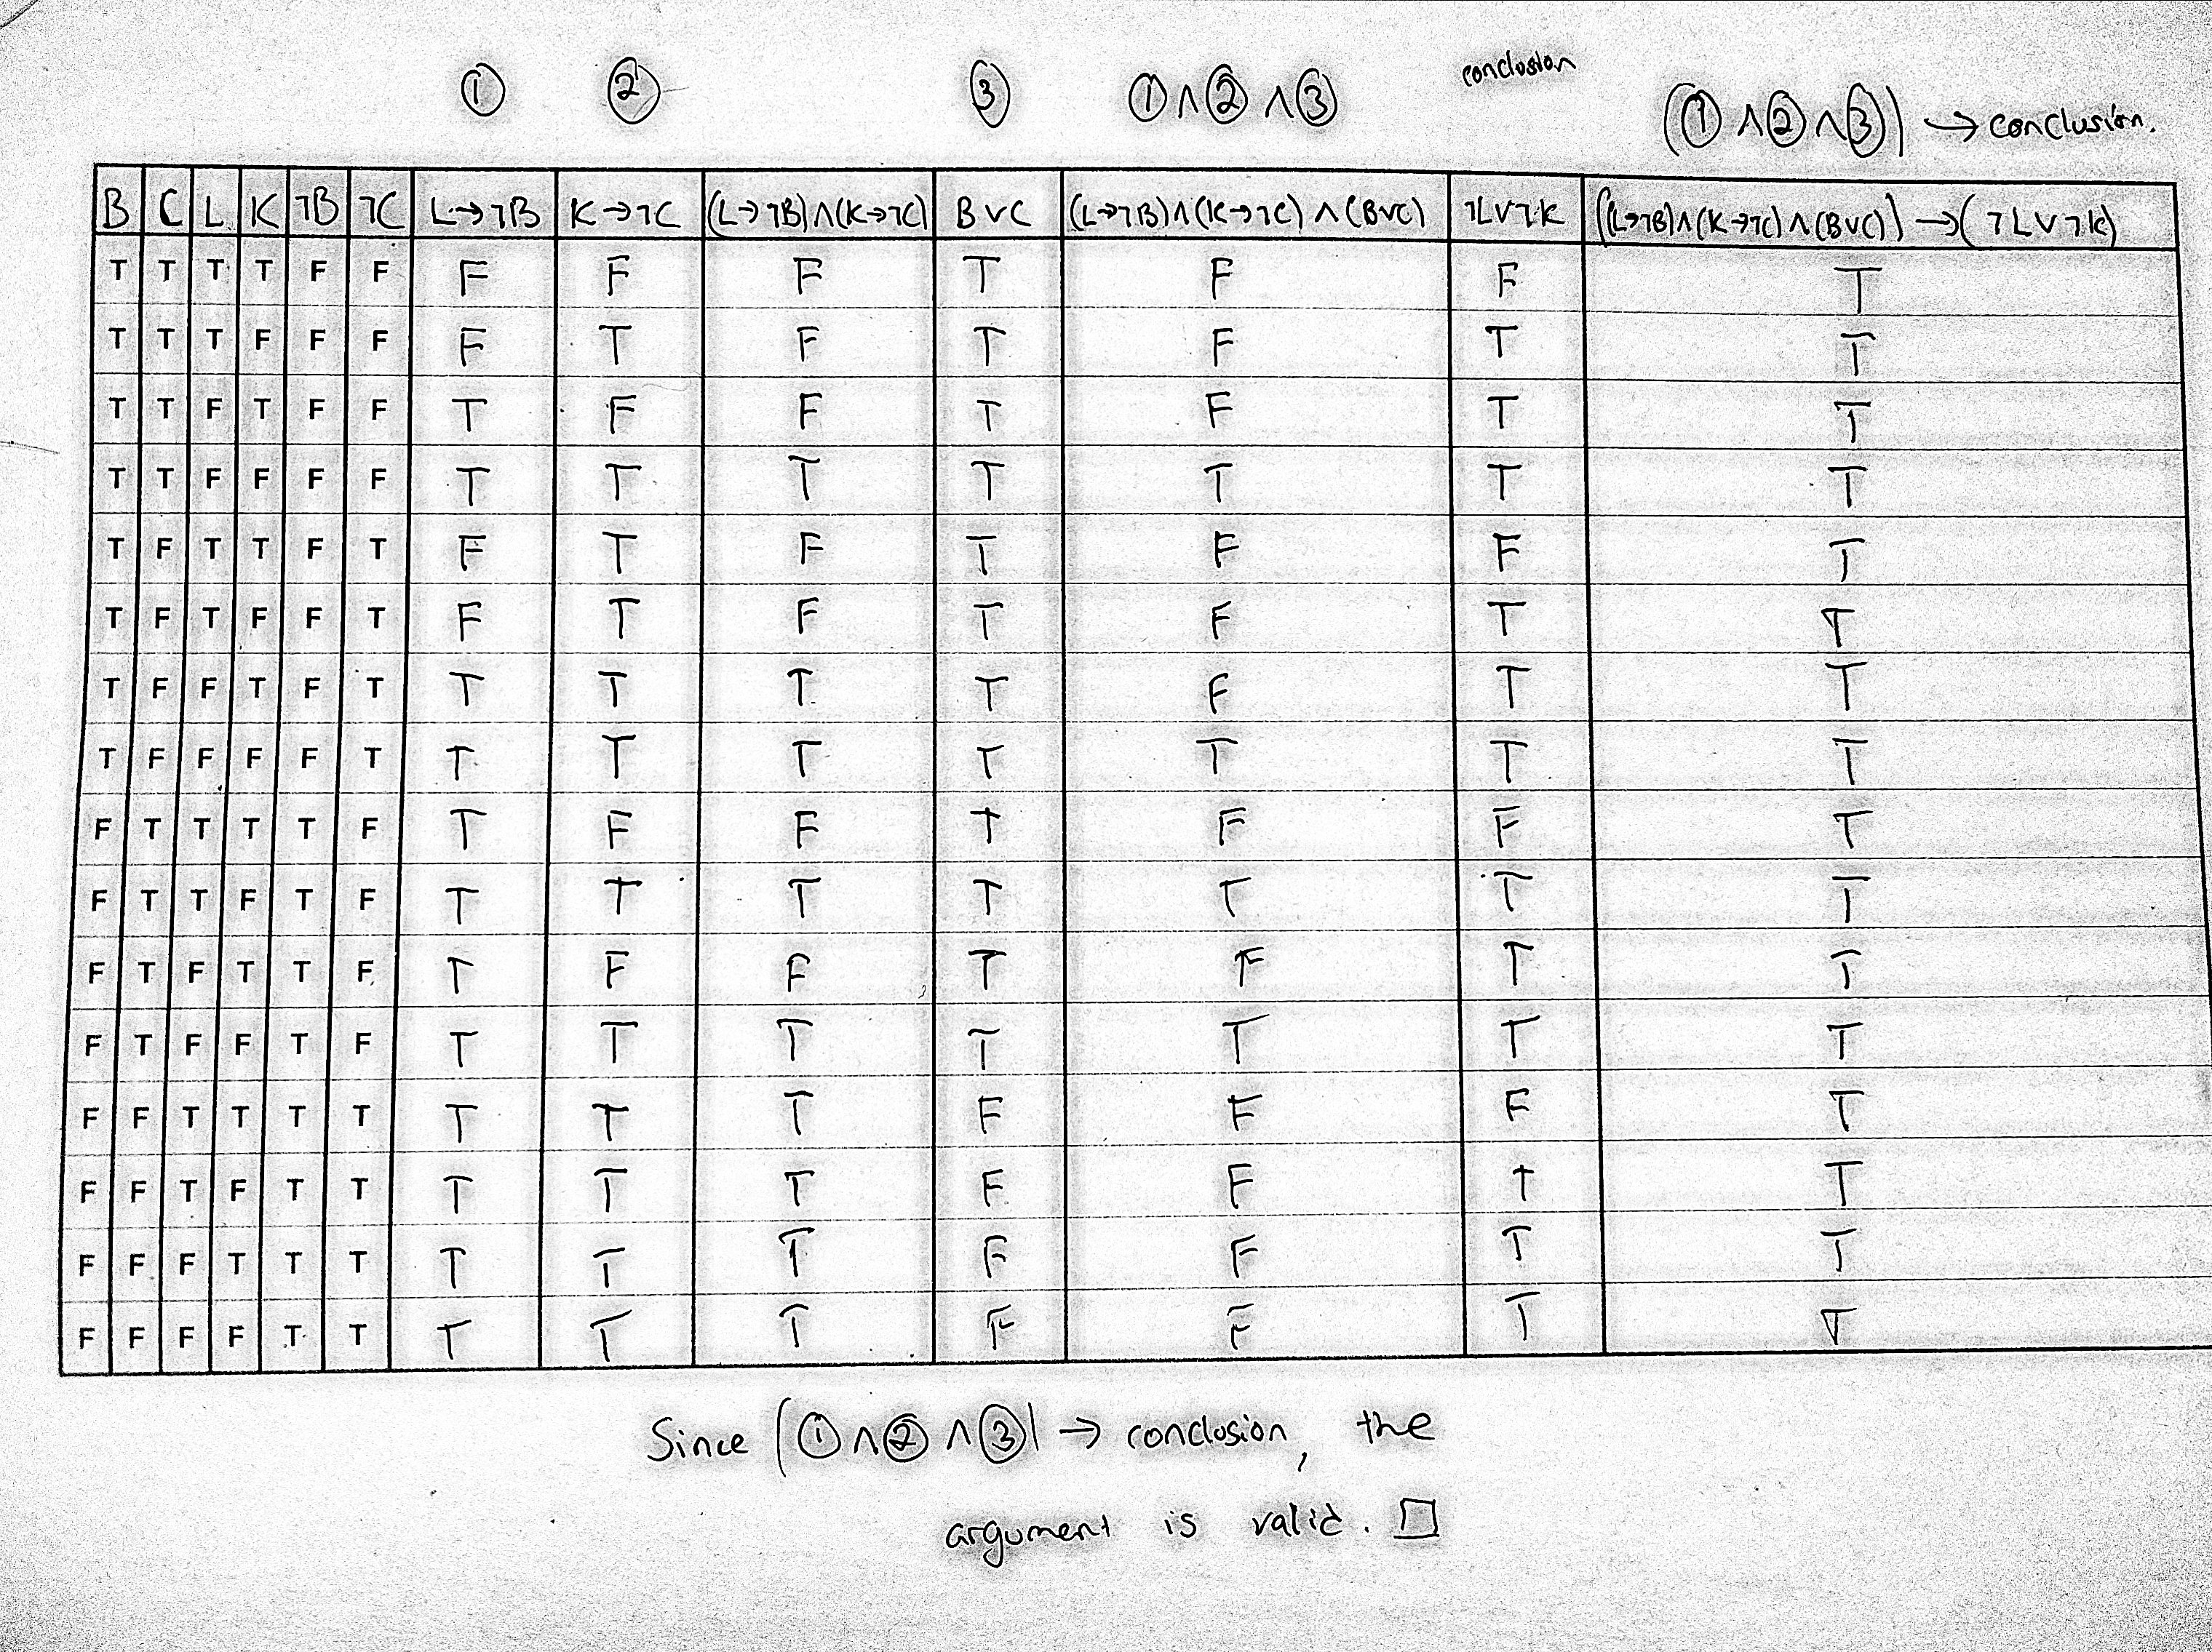 ① ② ③ ①∧②∧③ conclusion (①∧②∧③) → conclusion.
B C L K ¬B ¬C L→¬B K→¬C (L→¬B)∧(K→¬C) B∨C (L→¬B)∧(K→¬C)∧(B∨C) ¬L∨¬K ((L→¬B)∧(K→¬C)∧(B∨C))→(¬L∨¬K)
T T T T F F F F F T F F T
T T T F F F F T F T F T T
T T F T F F T F F T F T T
T T F F F F T T T T T T T
T F T T F T F T F T F F T
T F T F F T F T F T F T T
T F F T F T T T T T F T T
T F F F F T T T T T T T T
F T T T T F T F F T F F T
F T T F T F T T T T T T T
F T F T T F T F F T F T T
F T F F T F T T T T T T T
F F T T T T T T T F F F T
F F T F T T T T T F F T T
F F F T T T T T T F F T T
F F F F T T T T T F F T T
Since (①∧②∧③) → conclusion, the
argument is valid. □